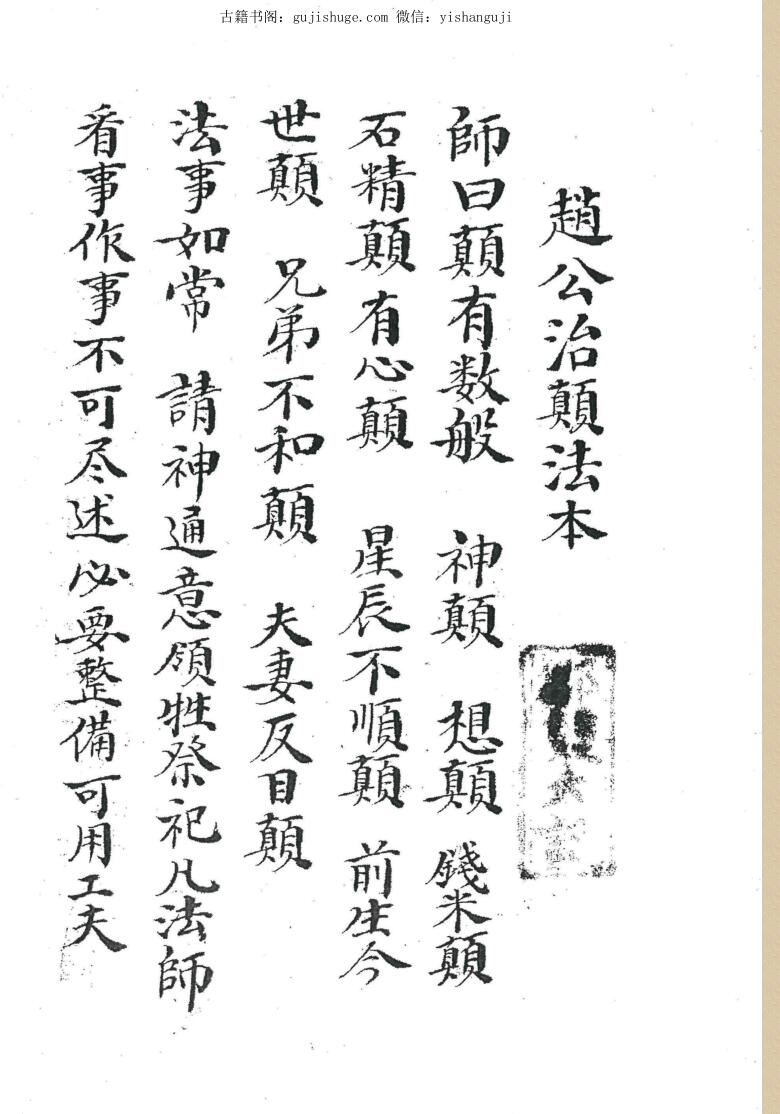 古籍书阁：gujishuge.com 微信：yishanguji
趙公治顛法本
師曰顛有数般 神顛 想顛 錢米顛
石精顛 有心顛 星辰不順顛 前生今
世顛 兄弟不和顛 夫妻反目顛
法事如常 請神通意領牲祭祀凡法師
看事作事不可尽述必要整備可用工夫